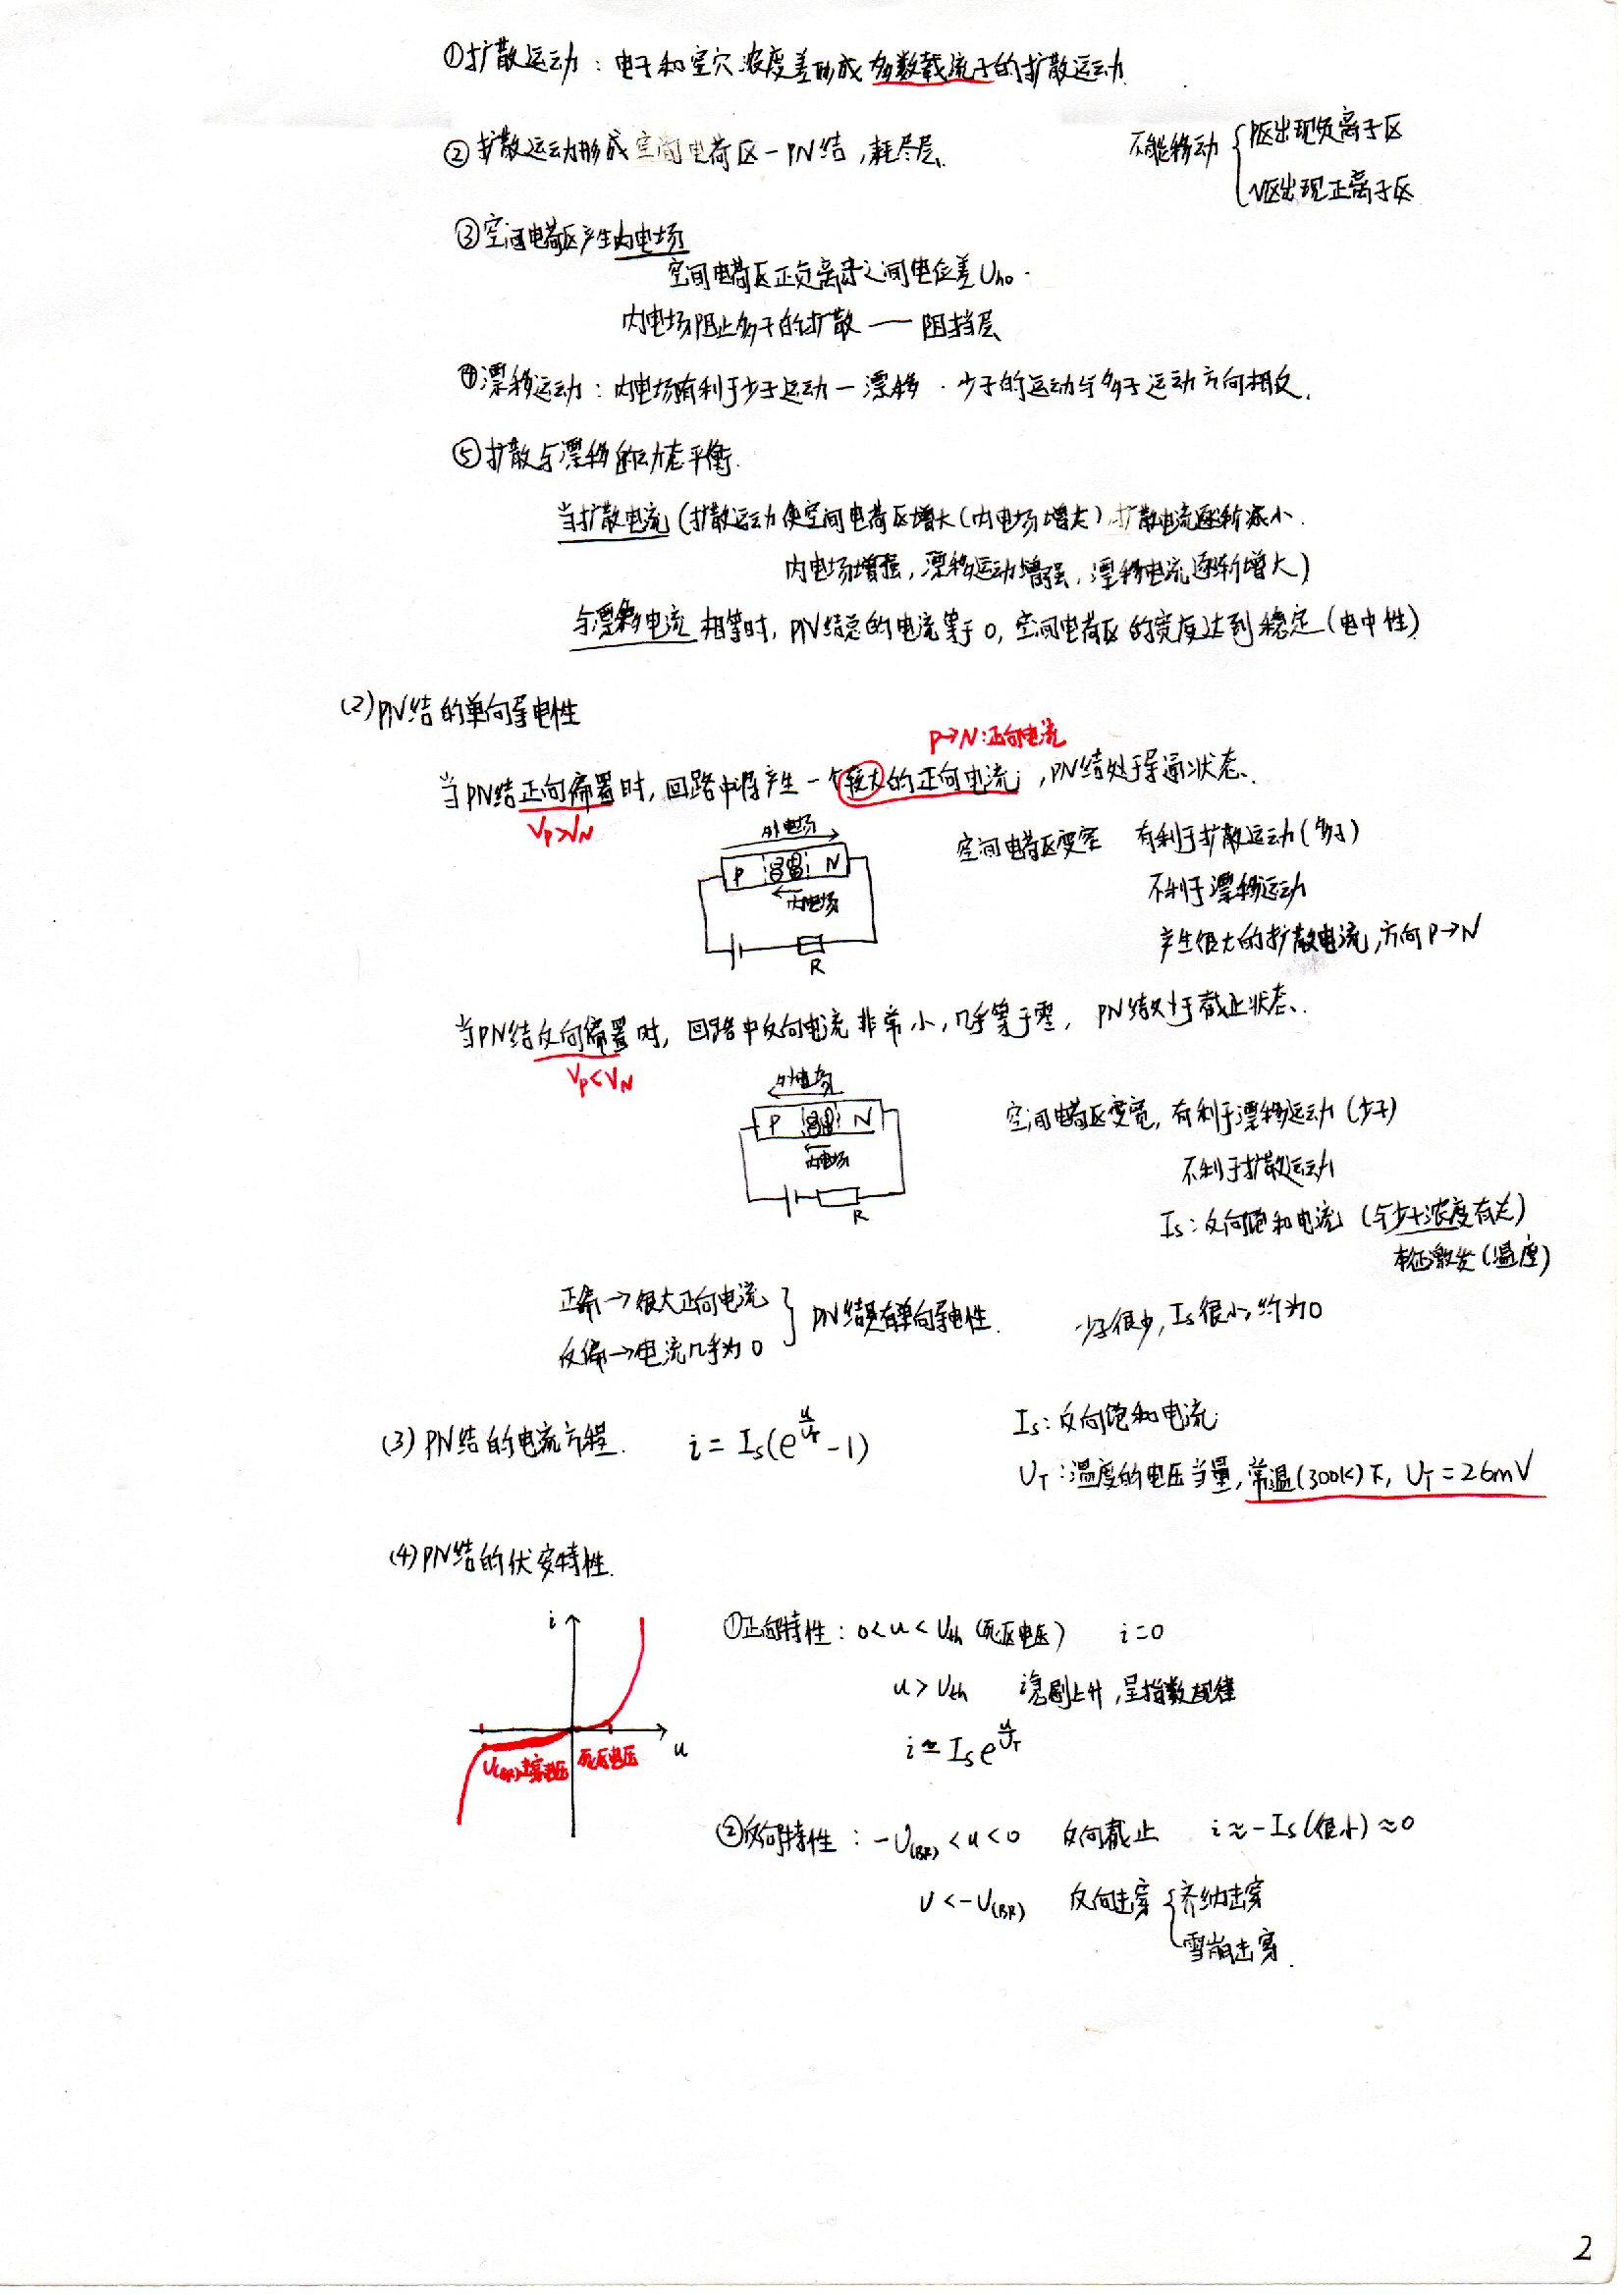 ①扩散运动：电子和空穴浓度差形成多数载流子的扩散运动.
②扩散运动形成空间电荷区－PN结，耗尽层.
不能移动 { P区出现负离子区
N区出现正离子区
③空间电荷区产生内电场
空间电荷区正负离子之间电位差Uho.
内电场阻止多子的扩散——阻挡层
④漂移运动：内电场有利于少子运动－漂移．少子的运动与多子运动方向相反.
⑤扩散与漂移的动态平衡.
当扩散电流(扩散运动使空间电荷区增大(内电场增大),扩散电流逐渐减小.
内电场增强，漂移运动增强，漂移电流逐渐增大)
与漂移电流相等时，PN结总的电流等于0，空间电荷区的宽度达到稳定(电中性)
(2)PN结的单向导电性
P→N:正向电流
当PN结正向偏置时，回路中将产生一个较大的正向电流，PN结处于导通状态.
VP>VN
外电场
P N
内电场
R
空间电荷区变窄 有利于扩散运动(多子)
不利于漂移运动
产生很大的扩散电流，方向P→N
当PN结反向偏置时，回路中反向电流非常小，几乎等于零，PN结处于截止状态.
VP<VN
外电场
P N
内电场
R
空间电荷区变宽，有利于漂移运动(少子)
不利于扩散运动
Is：反向饱和电流 (与少子浓度有关)
本征激发(温度)
正偏→很大正向电流
反偏→电流几乎为0 } PN结具有单向导电性.
少子很少，Is很小，约为0
(3) PN结的电流方程. i = Is(e^{u/UT} - 1)
Is：反向饱和电流
UT：温度的电压当量，常温(300K)下，UT=26mV
(4)PN结的伏安特性.
i
u
U(BR)击穿电压 死区电压
①正向特性：0<u<Uth (死区电压) i=0
u>Uth i急剧上升，呈指数规律
i≃Is e^{u/UT}
②反向特性：-U(BR)<u<0 反向截止 i≈-Is(很小)≈0
U<-U(BR) 反向击穿 { 齐纳击穿
雪崩击穿.
2